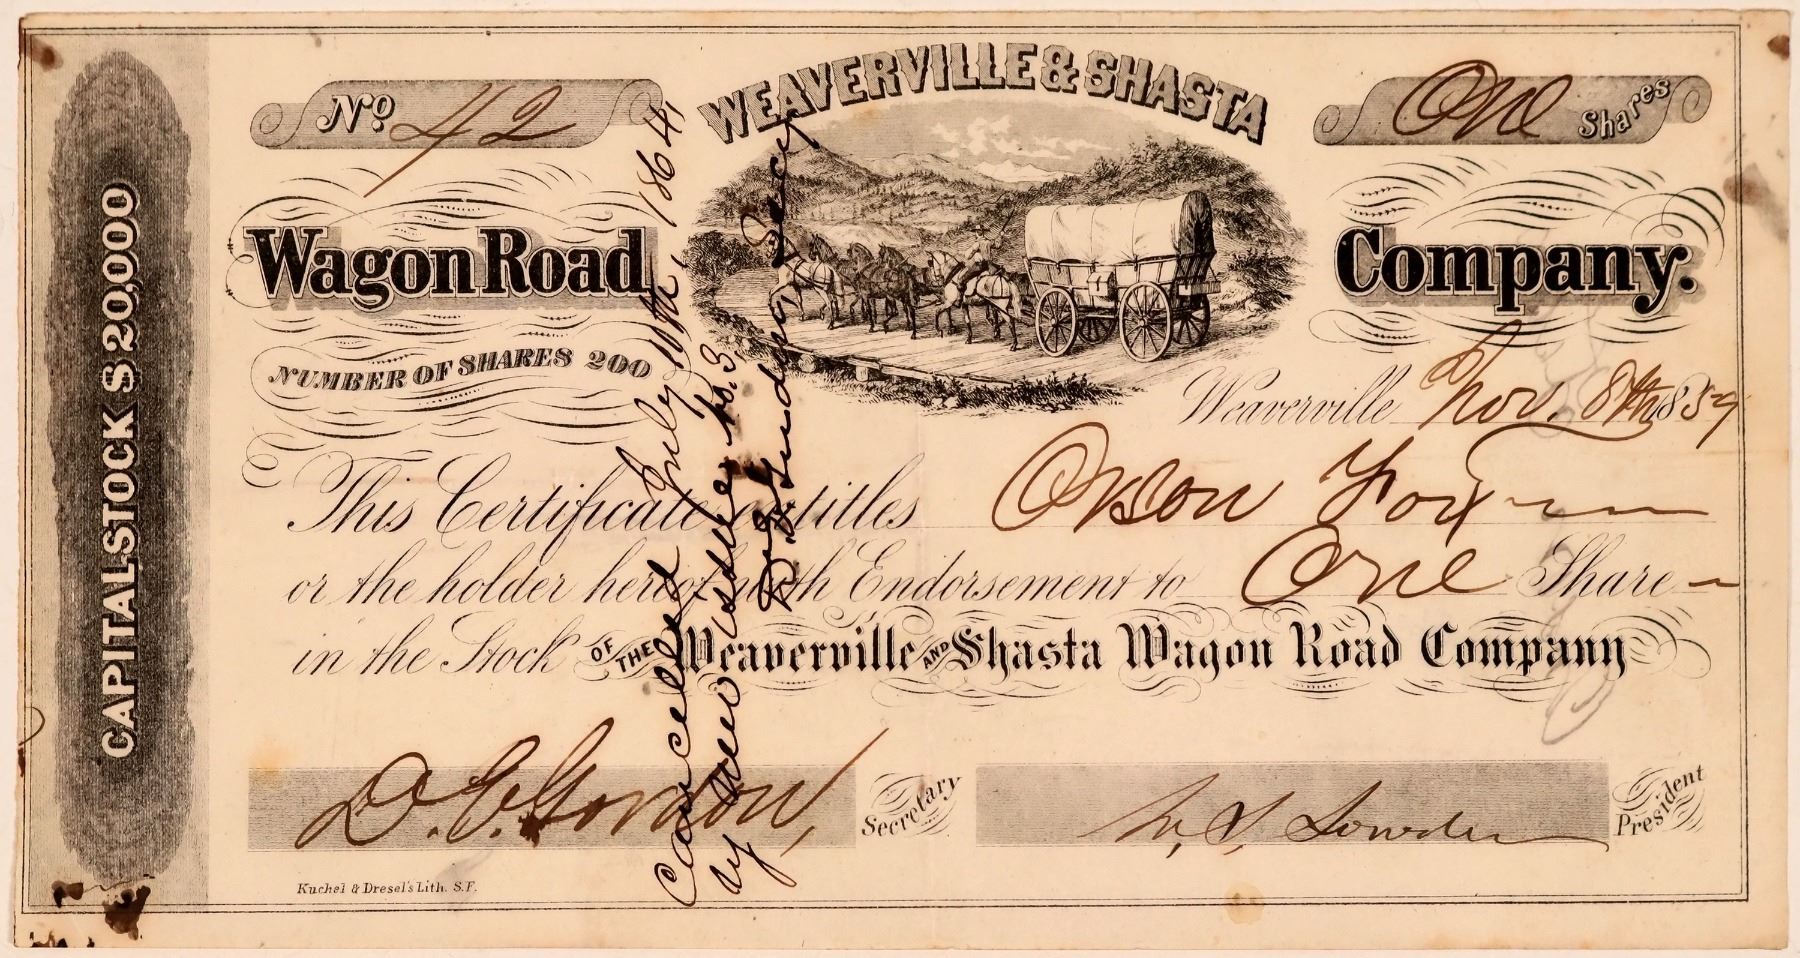 CAPITAL STOCK $20,000
No. 42
WEAVERVILLE & SHASTA
One Shares
Wagon Road
Company.
NUMBER OF SHARES 200
Weaverville Nov. 8th 1859
This Certificate entitles Orson Fox
or the holder hereof with Endorsement to One Share
in the Stock OF THE Weaverville AND Shasta Wagon Road Company
D. E. Gordon, Secretary
W. S. Lowden President
Kuchel & Dresel's Lith. S.F.
Cancelled July 11th, 1864,
by new issue No. 3
Secy